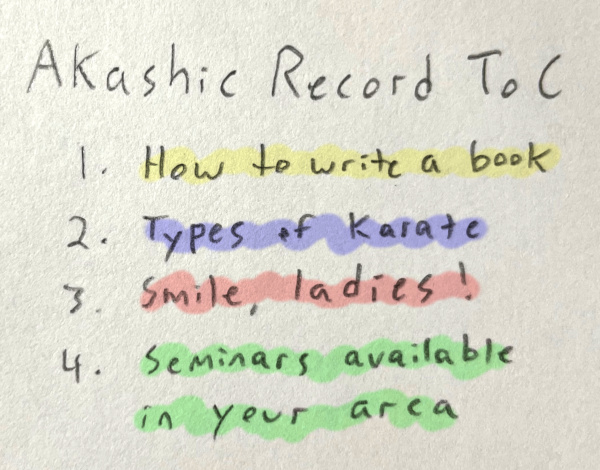 Akashic Record ToC
1. How to write a book
2. Types of Karate
3. Smile, ladies!
4. Seminars available
in your area